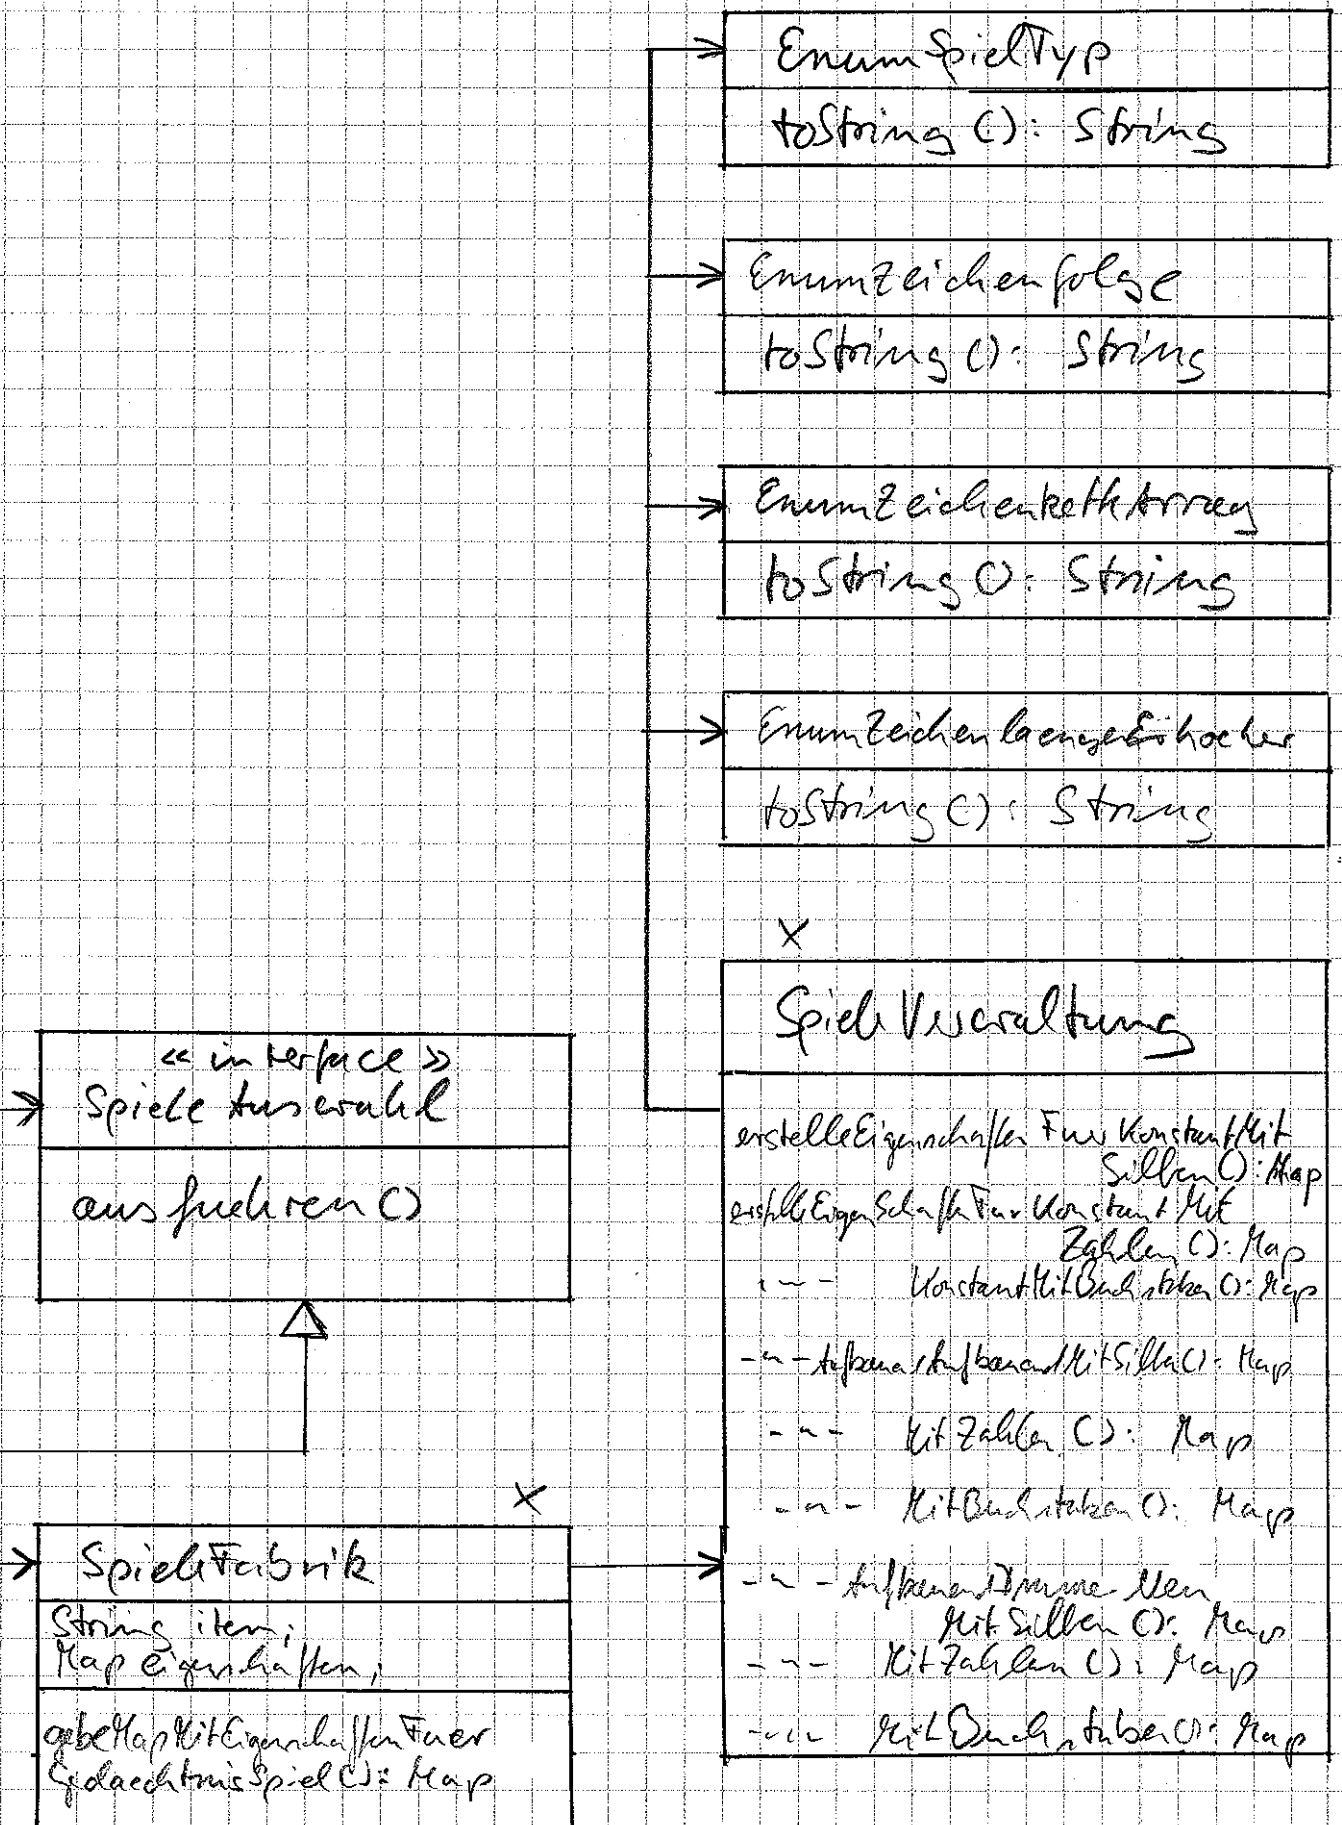 EnumSpielTyp
toString(): String
EnumZeichenfolge
toString(): String
EnumZeichenketteArray
toString(): String
EnumZeichenlaengeErhoeher
toString(): String
X
SpieleVerwaltung
erstelleEigenschaftenFuerKonstantMit
Silben(): Map
erstelleEigenschaftenFuerKonstantMit
Zahlen(): Map
-"- KonstantMitBuchstaben(): Map
-"- AufbauendMitSilben(): Map
-"- MitZahlen(): Map
-"- MitBuchstaben(): Map
-"- AufbauendImmerNeu
MitSilben(): Map
-"- MitZahlen(): Map
-"- MitBuchstaben(): Map
<< interface >>
SpieleAuswahl
ausfuehren()
X
SpieleFabrik
String item;
Map eigenschaften;
gebeMapMitEigenschaftenFuer
GedaechtnisSpiel(): Map